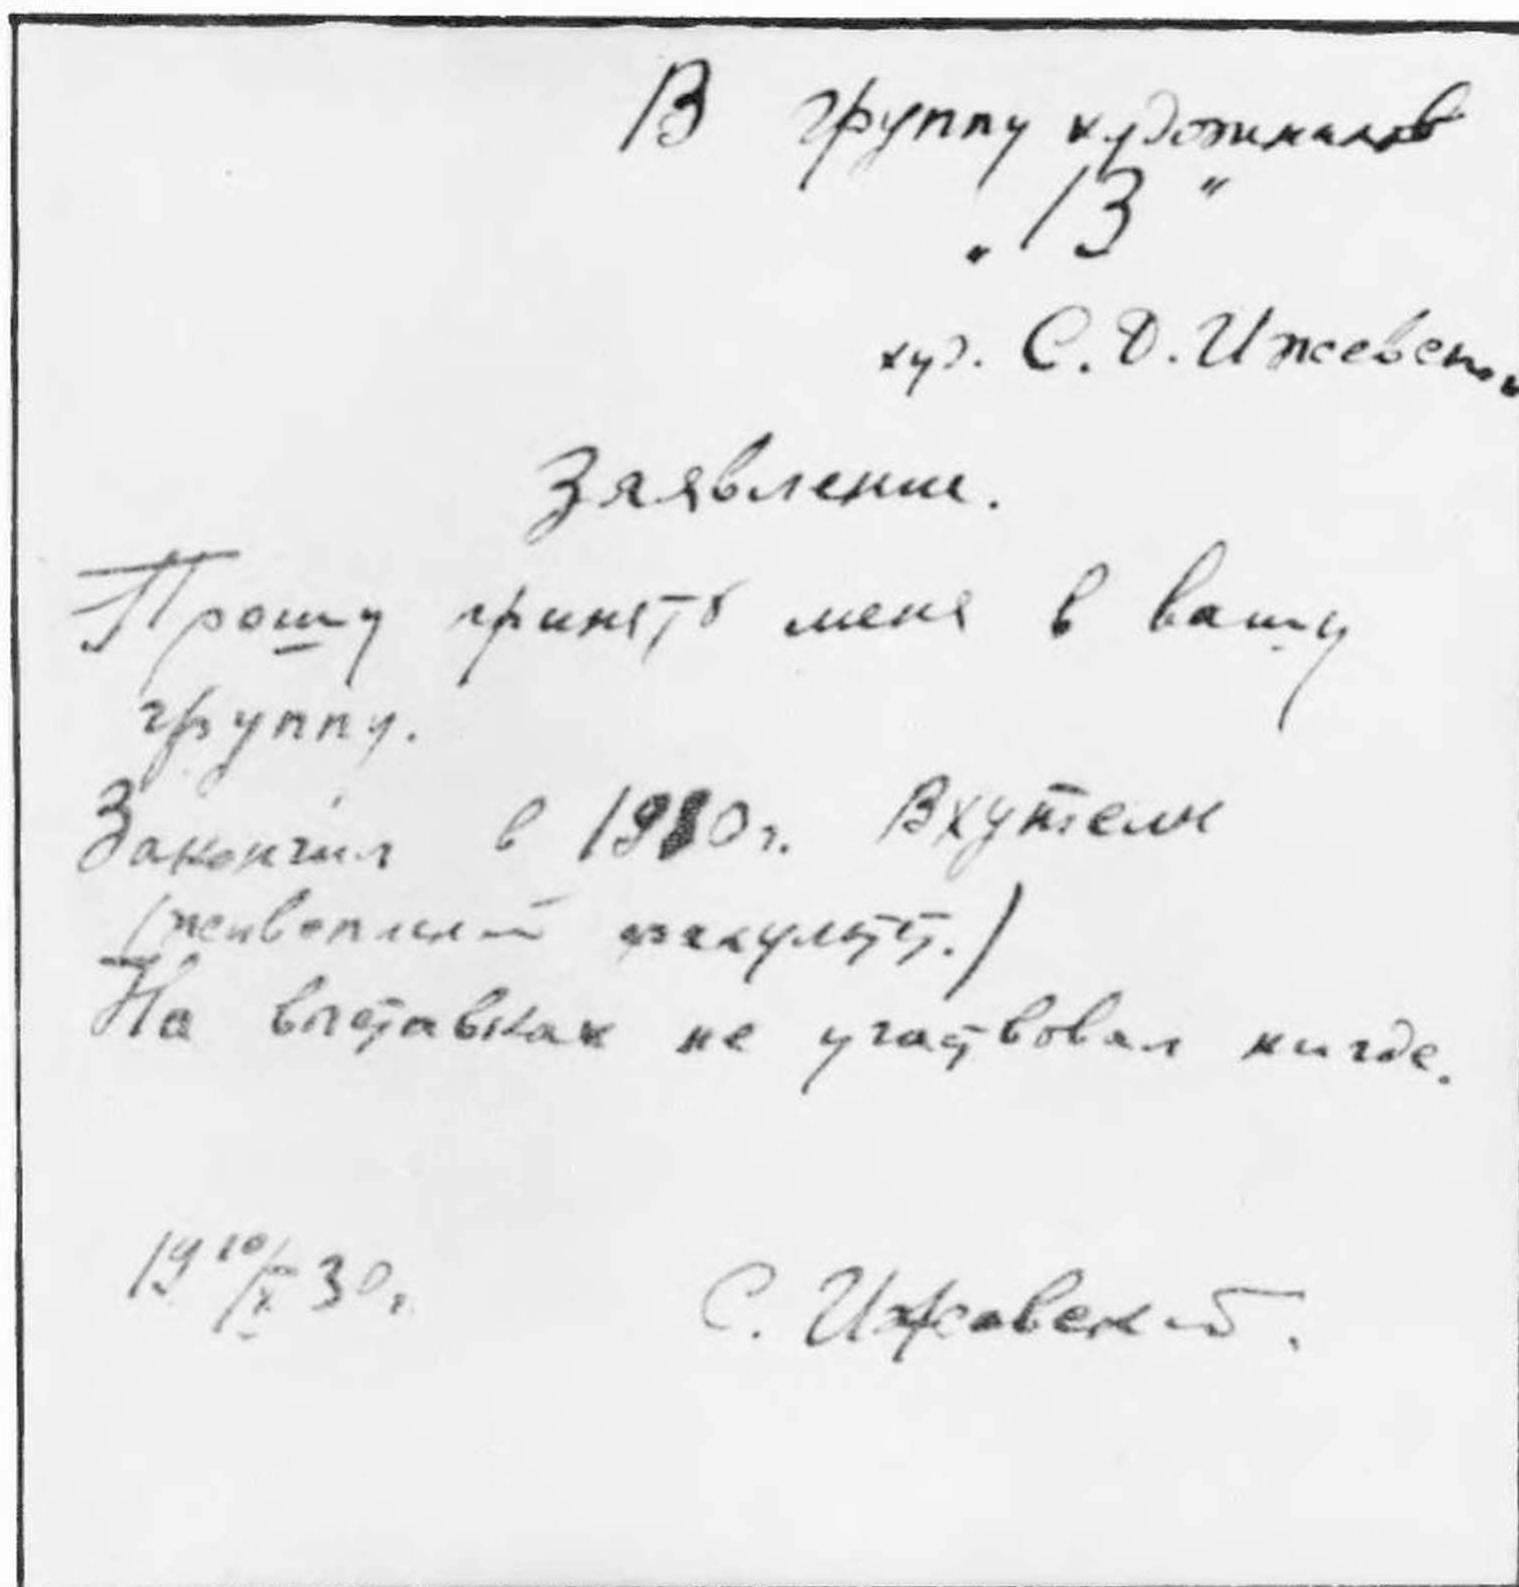 В группу художников
„13"
худ. С. Д. Ижевского
Заявление.
Прошу принять меня в вашу
группу.
Закончил в 1930 г. Вхутеин
(живописный факультет.)
На выставках не участвовал нигде.
19 10/X 30 г.
С. Ижевский.